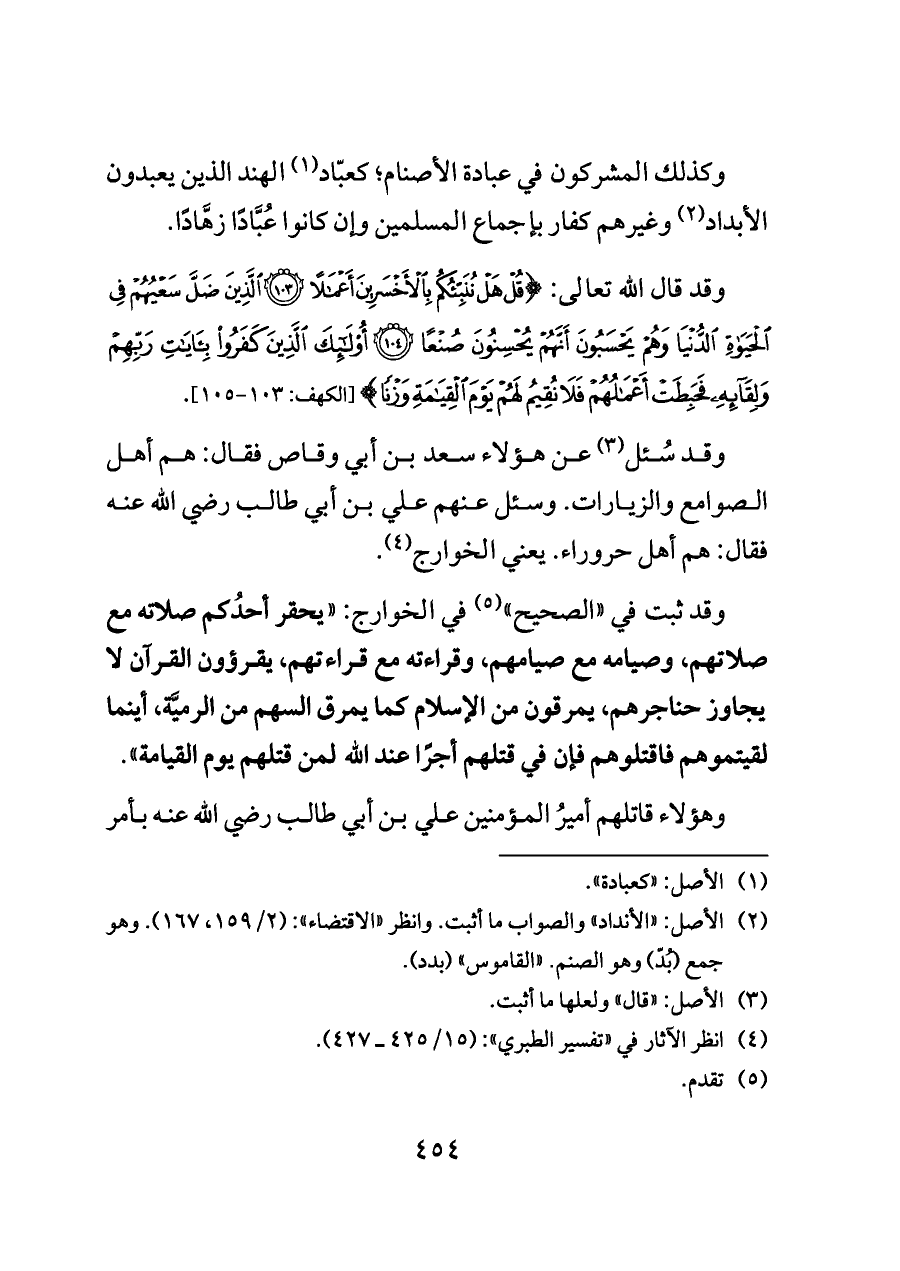 وكذلك المشركون في عبادة الأصنام؛ كعبّاد(١) الهند الذين يعبدون
الأبداد(٢) وغيرهم كفار بإجماع المسلمين وإن كانوا عُبَّادًا زهَّادًا.
وقد قال الله تعالى: ﴿قُلْ هَلْ نُنَبِّئُكُم بِٱلْأَخْسَرِينَ أَعْمَٰلًا ١٠٣ ٱلَّذِينَ ضَلَّ سَعْيُهُمْ فِى
ٱلْحَيَوٰةِ ٱلدُّنْيَا وَهُمْ يَحْسَبُونَ أَنَّهُمْ يُحْسِنُونَ صُنْعًا ١٠٤ أُو۟لَٰٓئِكَ ٱلَّذِينَ كَفَرُوا۟ بِـَٔايَٰتِ رَبِّهِمْ
وَلِقَآئِهِۦ فَحَبِطَتْ أَعْمَٰلُهُمْ فَلَا نُقِيمُ لَهُمْ يَوْمَ ٱلْقِيَٰمَةِ وَزْنًا﴾ [الكهف: ١٠٣-١٠٥].
وقد سُئل(٣) عن هؤلاء سعد بن أبي وقاص فقال: هم أهل
الصوامع والزيارات. وسئل عنهم علي بن أبي طالب رضي الله عنه
فقال: هم أهل حروراء. يعني الخوارج(٤).
وقد ثبت في «الصحيح»(٥) في الخوارج: «يحقر أحدُكم صلاته مع
صلاتهم، وصيامه مع صيامهم، وقراءته مع قراءتهم، يقرؤون القرآن لا
يجاوز حناجرهم، يمرقون من الإسلام كما يمرق السهم من الرميَّة، أينما
لقيتموهم فاقتلوهم فإن في قتلهم أجرًا عند الله لمن قتلهم يوم القيامة».
وهؤلاء قاتلهم أميرُ المؤمنين علي بن أبي طالب رضي الله عنه بأمر
(١) الأصل: «كعبادة».
(٢) الأصل: «الأنداد» والصواب ما أثبت. وانظر «الاقتضاء»: (٢/ ١٥٩، ١٦٧). وهو
جمع (بُدّ) وهو الصنم. «القاموس» (بدد).
(٣) الأصل: «قال» ولعلها ما أثبت.
(٤) انظر الآثار في «تفسير الطبري»: (١٥/ ٤٢٥ ـ ٤٢٧).
(٥) تقدم.
٤٥٤